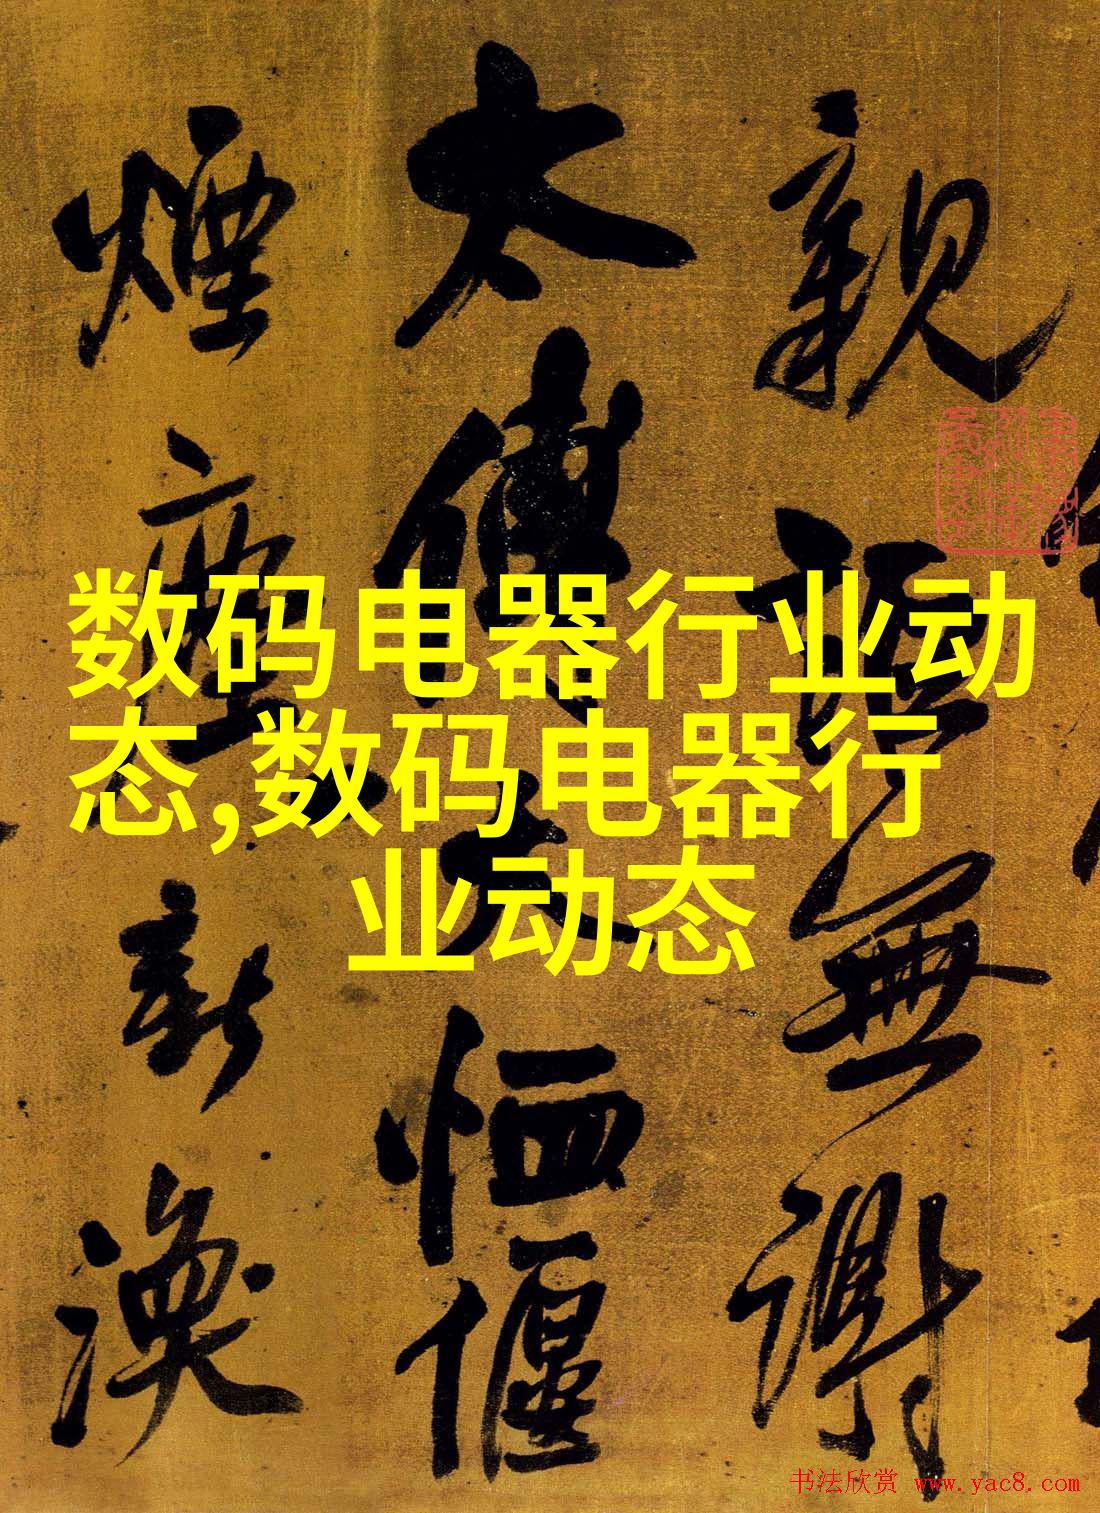 親
無謝
太傅
煙塵新渙
数码电器行业动
态,数码电器行
业动态
书法欣赏 www.yac8.com